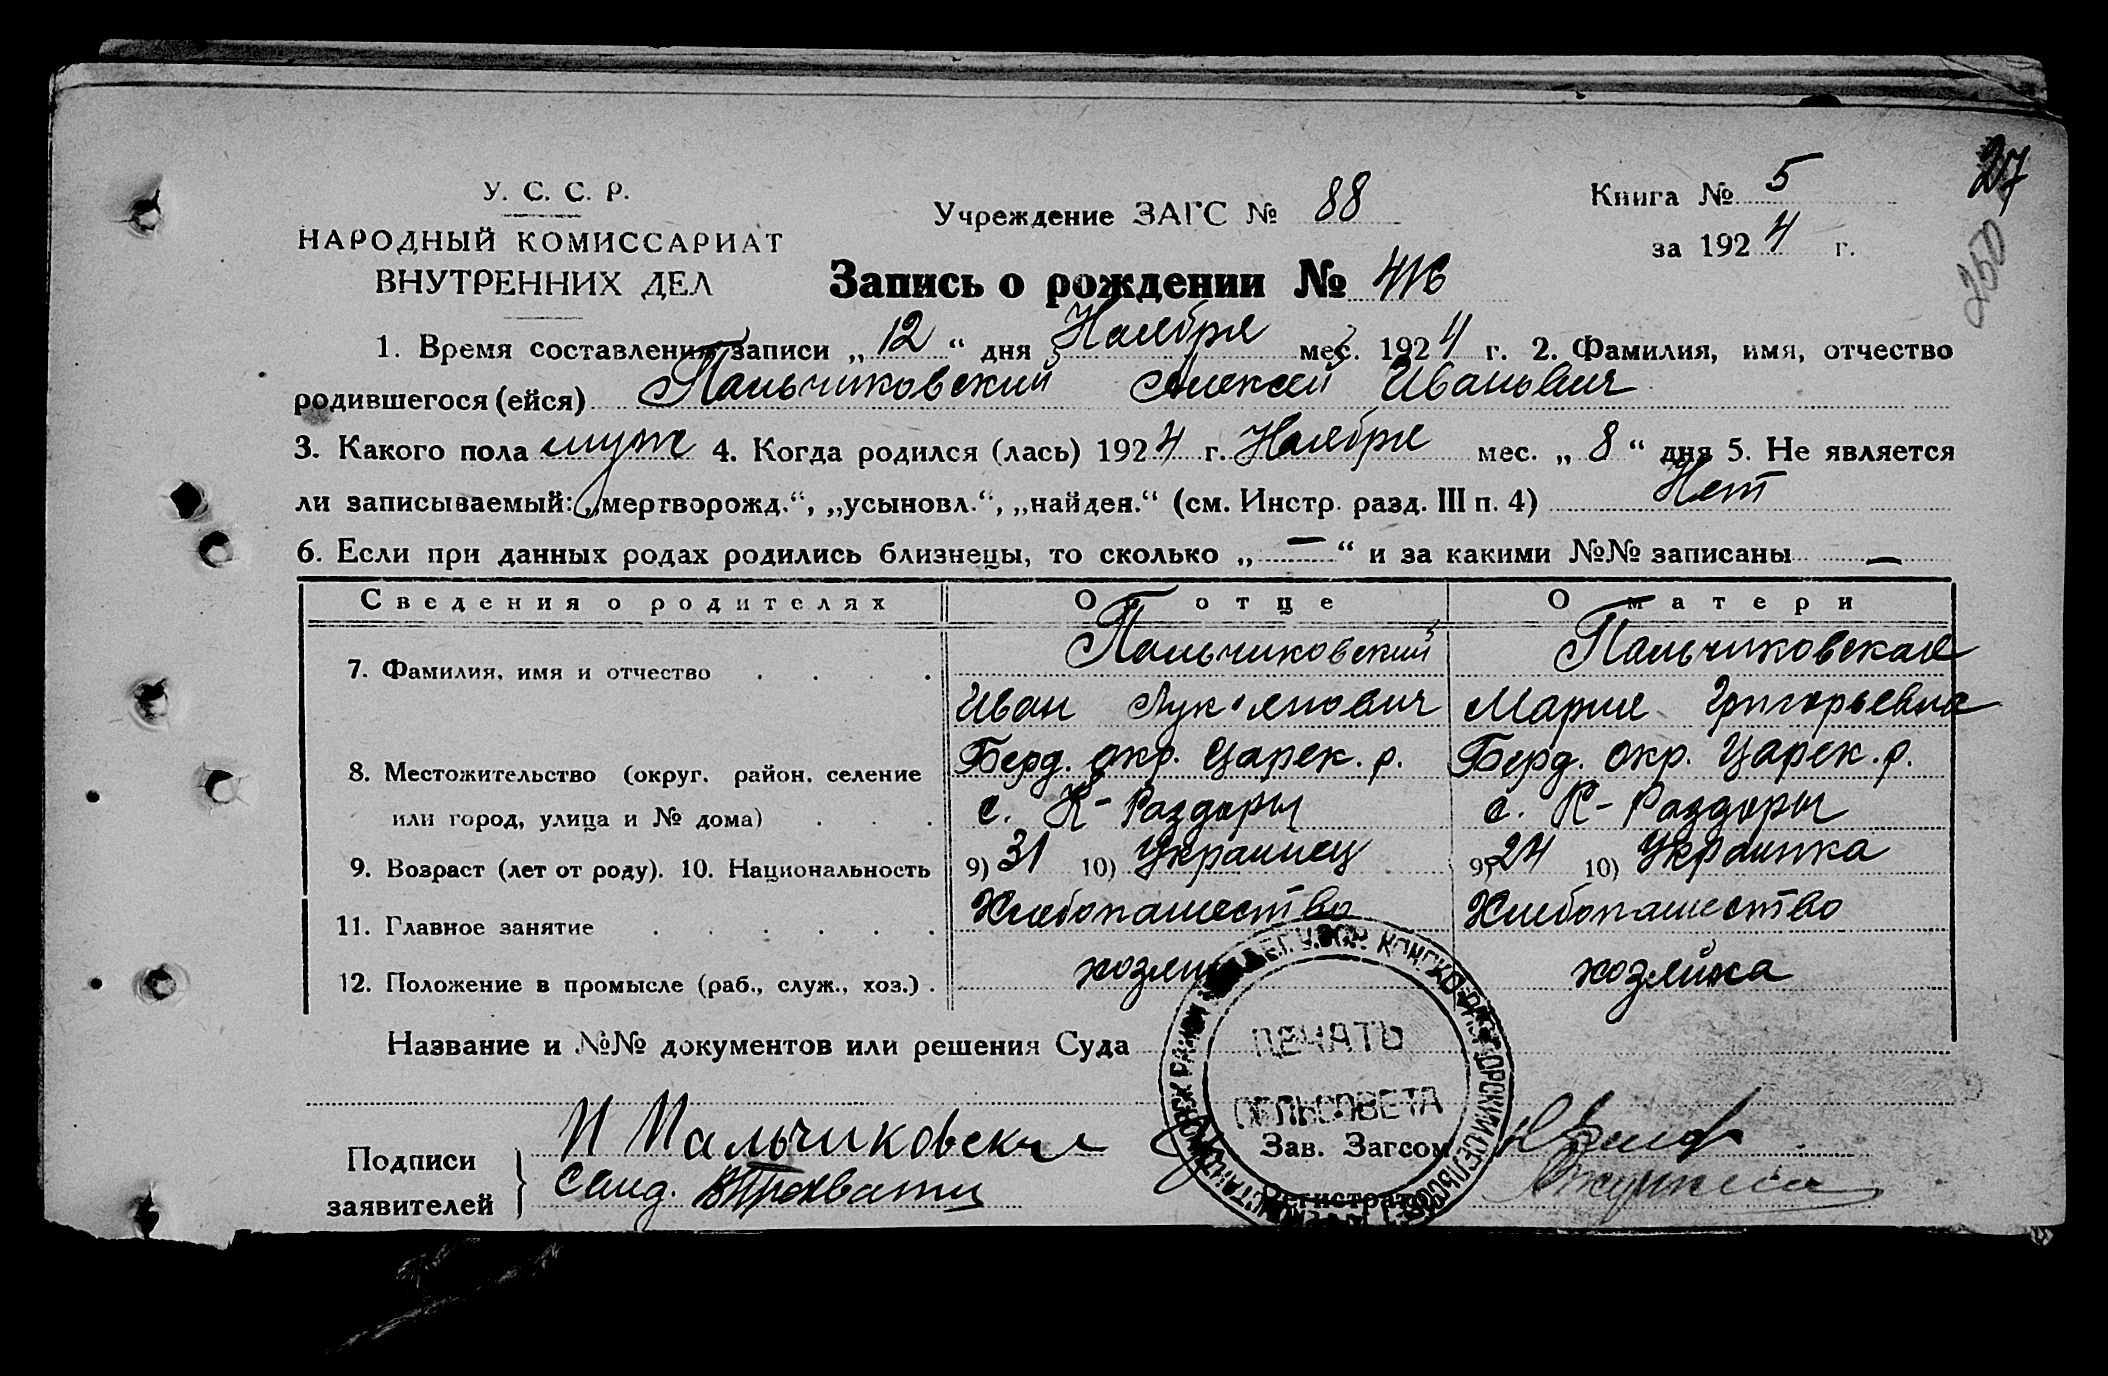 27
250
У. С. С. Р.
НАРОДНЫЙ КОМИССАРИАТ
ВНУТРЕННИХ ДЕЛ
Учреждение ЗАГС № 88
Книга № 5
за 1924 г.
Запись о рождении № 416
1. Время составления записи „12“ дня Ноября мес. 1924 г. 2. Фамилия, имя, отчество
родившегося (ейся) Пальчиковский Алексей Иванович
3. Какого пола муж 4. Когда родился (лась) 1924 г. Ноября мес. „8“ дня 5. Не является
ли записываемый: „мертворожд.“, „усыновл.“, „найден.“ (см. Инстр. разд. III п. 4) Нет
6. Если при данных родах родились близнецы, то сколько „—“ и за какими №№ записаны —
Сведения о родителях О б о т ц е О м а т е р и
7. Фамилия, имя и отчество Пальчиковский Пальчиковская
Иван Лук'янович Мария Григорьевна
8. Местожительство (округ, район, селение Берд. окр. Царек. р. Берд. окр. Царек. р.
или город, улица и № дома) с. К-Раздоры с. К-Раздоры
9. Возраст (лет от роду). 10. Национальность 9) 31 10) Украинец 9) 24 10) Украинка
11. Главное занятие Хлебопашество Хлебопашество
12. Положение в промысле (раб., служ., хоз.) хозяин хозяйка
Название и №№ документов или решения Суда
ПЕЧАТЬ
СЕЛЬСОВЕТА
Подписи
заявителей
И Пальчиковский
Зав. Загсом
Регистратор